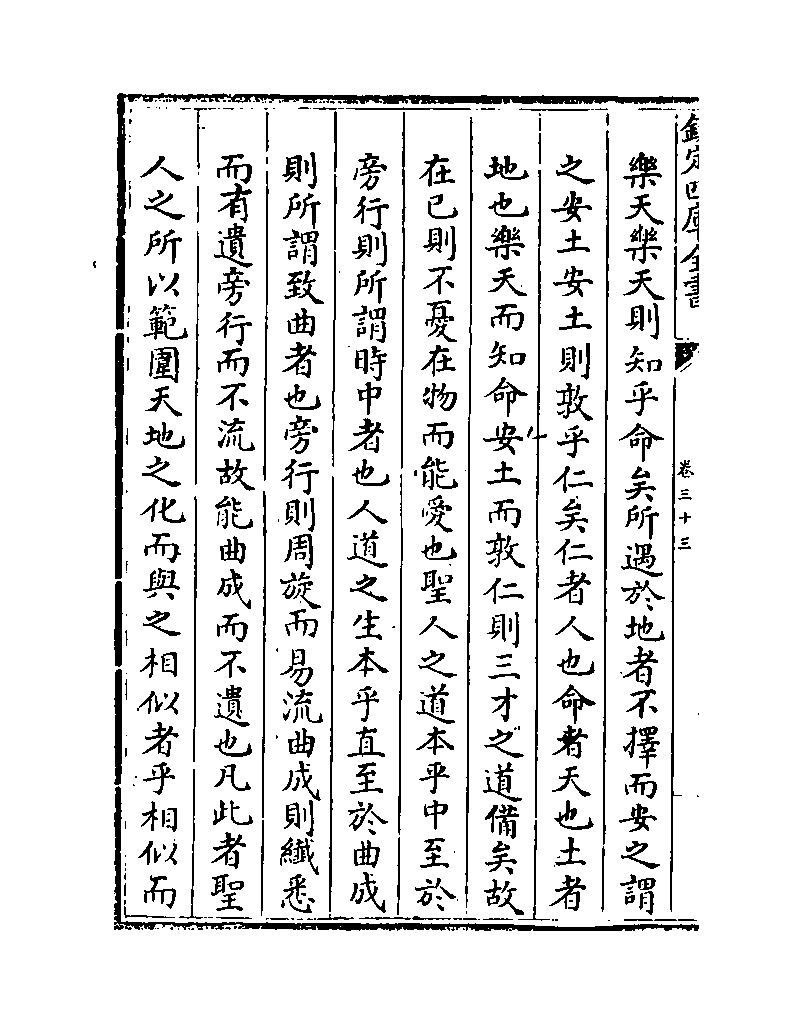 欽定四庫全書
卷三十三
樂天樂天則知乎命矣所遇於地者不擇而安之謂
之安土安土則敦乎仁矣仁者人也命者天也土者
地也樂天而知命安土而敦仁則三才之道備矣故
在已則不憂在物而能愛也聖人之道本乎中至於
旁行則所謂時中者也人道之生本乎直至於曲成
則所謂致曲者也旁行則周旋而易流曲成則纖悉
而有遺旁行而不流故能曲成而不遺也凡此者聖
人之所以範圍天地之化而與之相似者乎相似而